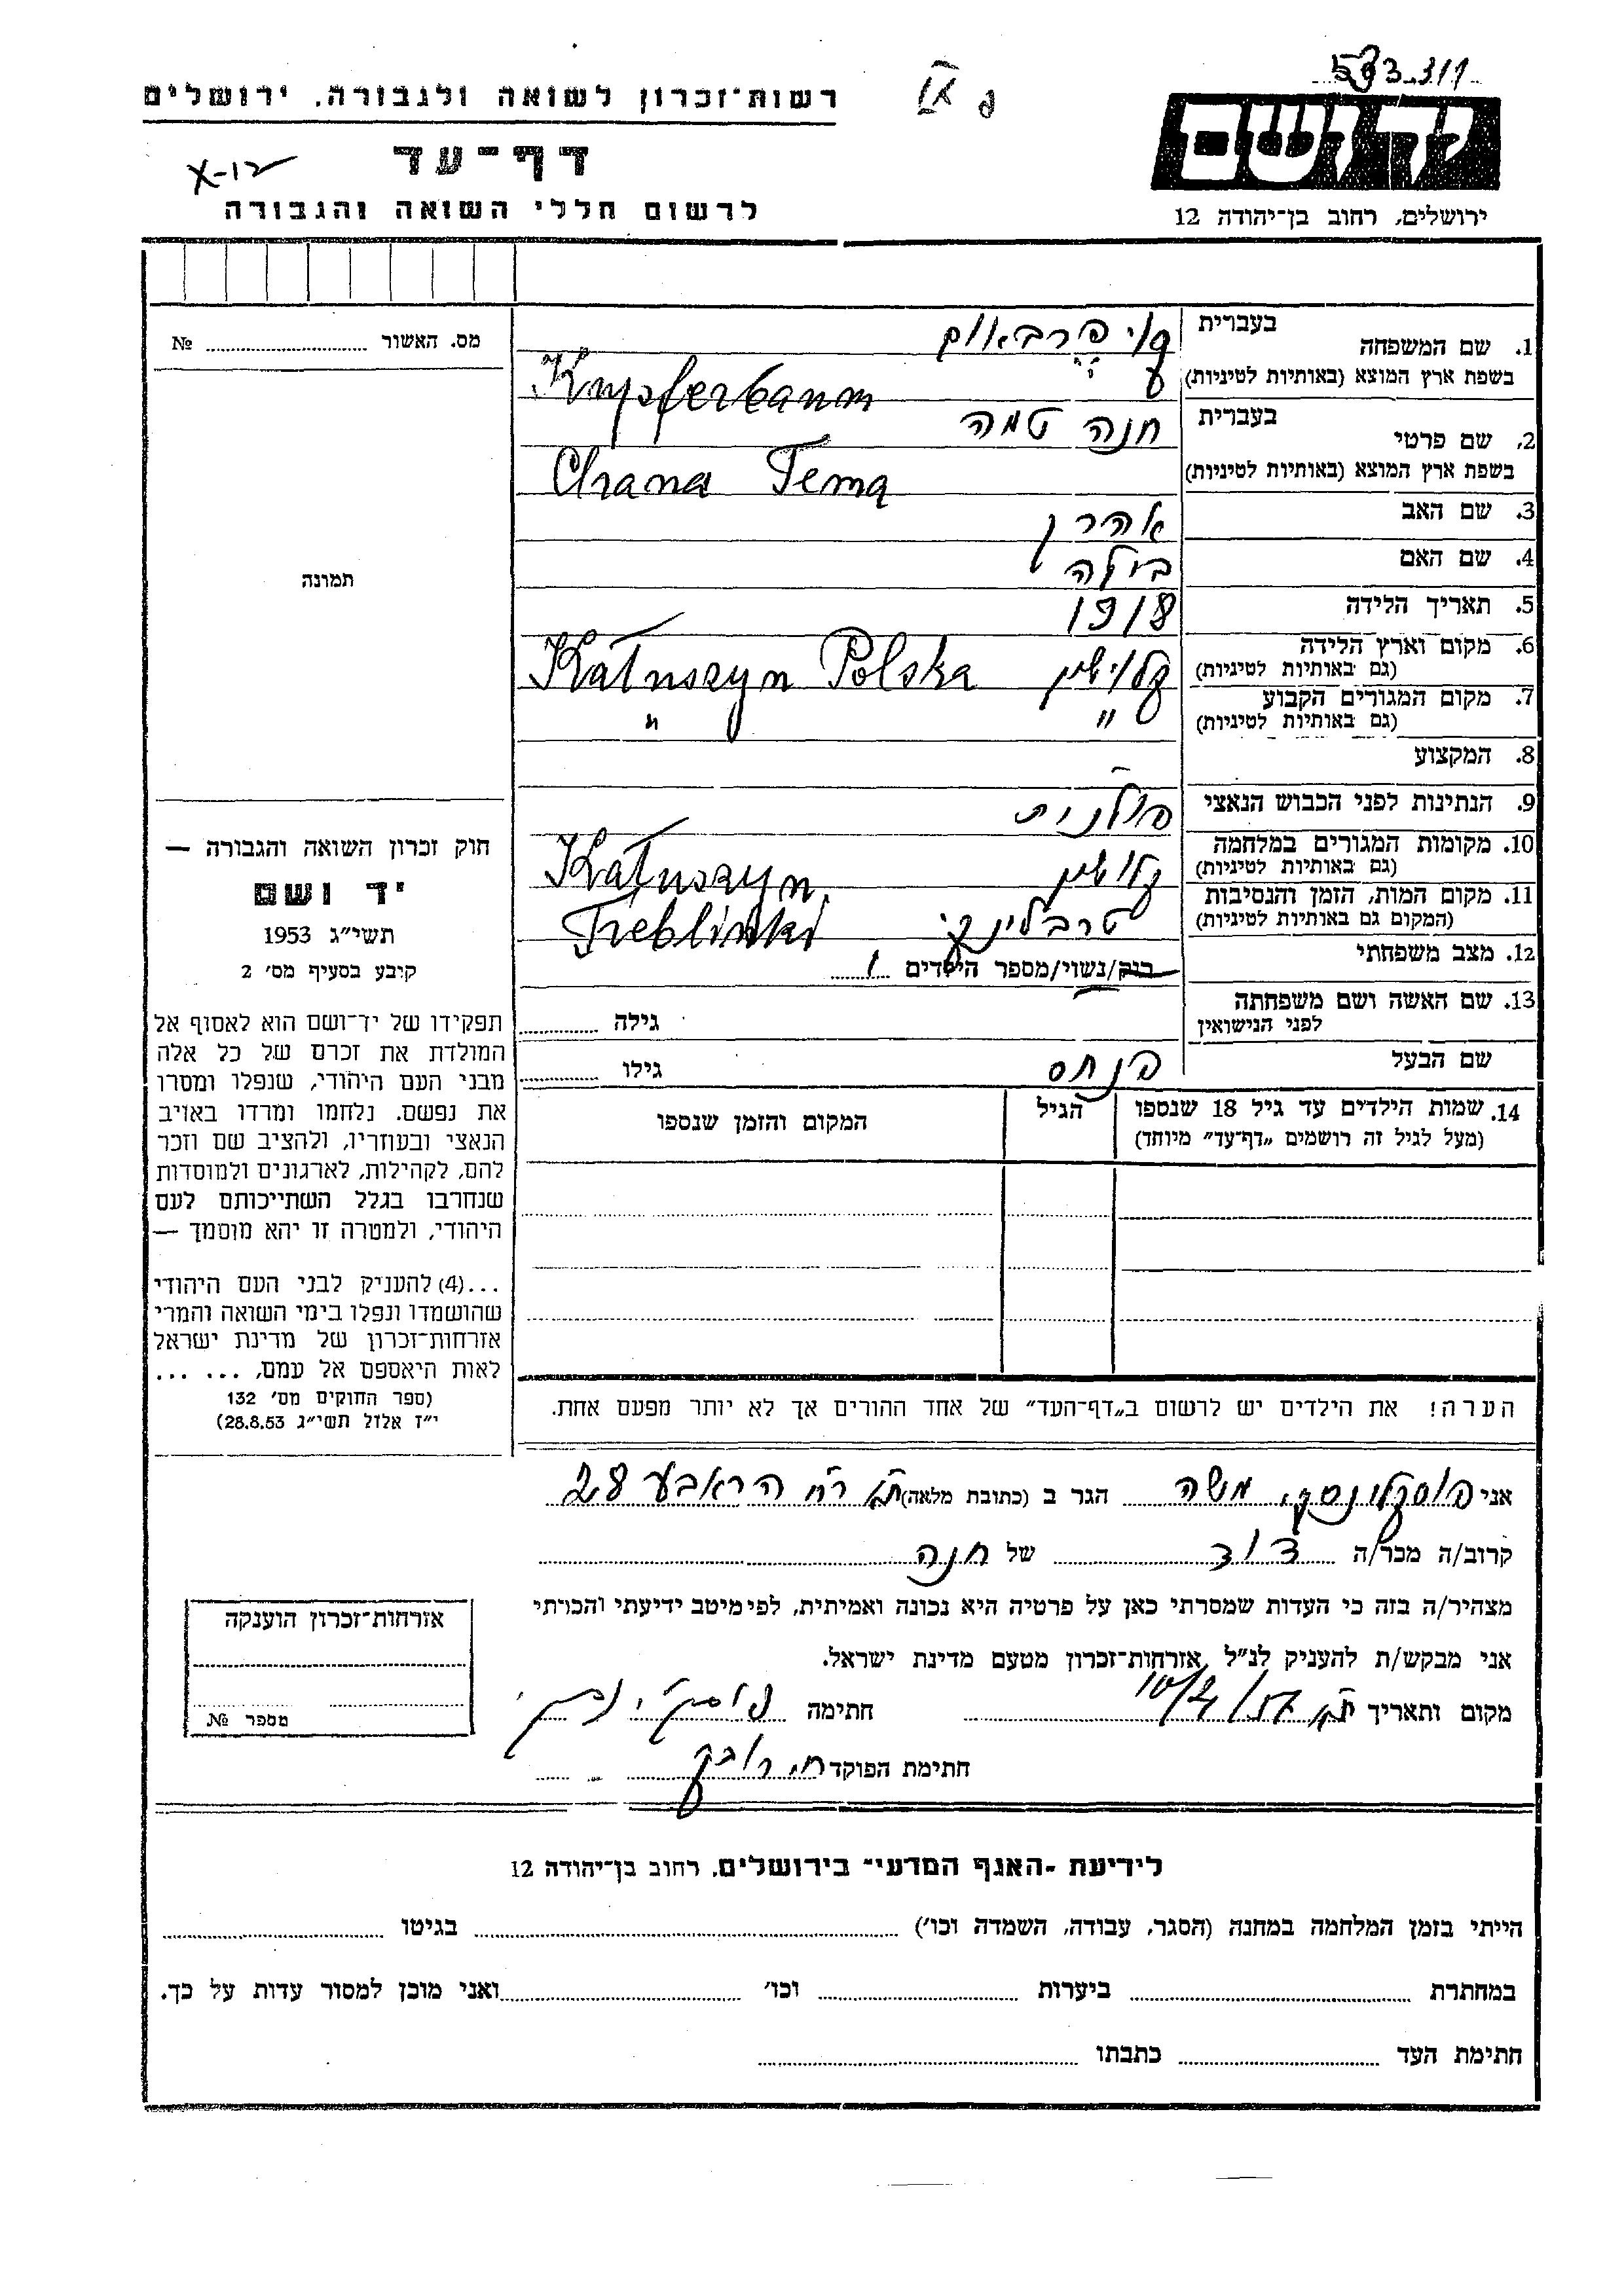 593311
רשות־זכרון לשואה ולגבורה, ירושלים
דף־עד
X-12
לרשום חללי השואה והגבורה
יד ושם
ירושלים, רחוב בן־יהודה 12
מס. האשור № 
תמונה
חוק זכרון השואה והגבורה —
יד ושם
תשי״ג 1953
קובע בסעיף מס׳ 2
תפקידו של יד־ושם הוא לאסוף אל
המולדת את זכרם של כל אלה
מבני העם היהודי, שנפלו ומסרו
את נפשם, נלחמו ומרדו באויב
הנאצי ובעוזריו, ולהציב שם וזכר
להם, לקהילות, לארגונים ולמוסדות
שנחרבו בגלל השתייכותם לעם
היהודי, ולמטרה זו יהא מוסמך —
...(4) להעניק לבני העם היהודי
שהושמדו ונפלו בימי השואה והמרי
אזרחות־זכרון של מדינת ישראל
לאות היאספם אל עמם, ... ...
(ספר החוקים מס׳ 132
י״ז אלול תשי״ג 28.8.53)
1. שם המשפחה בעברית
בשפת ארץ המוצא (באותיות לטיניות) Knysferbaum
2. שם פרטי בעברית חנה טמה
בשפת ארץ המוצא (באותיות לטיניות) Chana Tema
3. שם האב אהרן
4. שם האם ביילה
5. תאריך הלידה 1918
6. מקום וארץ הלידה קלושין Kałuszyn Polska
(גם באותיות לטיניות)
7. מקום המגורים הקבוע " "
(גם באותיות לטיניות)
8. המקצוע —
9. הנתינות לפני הכבוש הנאצי פולנית
10. מקומות המגורים במלחמה קלושין Kałuszyn
(גם באותיות לטיניות)
11. מקום המות, הזמן והנסיבות טרבלינקי Treblinki
(המקום גם באותיות לטיניות)
12. מצב משפחתי רווק/נשוי/מספר הילדים 1
13. שם האשה ושם משפחתה גילה
לפני הנישואין
שם הבעל פנחס גילו
14. שמות הילדים עד גיל 18 שנספו הגיל המקום והזמן שנספו
(מעל לגיל זה רושמים „דף־עד״ מיוחד)
הערה! את הילדים יש לרשום ב„דף־העד״ של אחד ההורים אך לא יותר מפעם אחת.
אני משה הגר ב (כתובת מלאה) ת״א רח׳ 28
קרוב/ה מכר/ה דוד של חנה
מצהיר/ה בזה כי העדות שמסרתי כאן על פרטיה היא נכונה ואמיתית, לפי מיטב ידיעתי והכרתי
אני מבקש/ת להעניק לנ״ל אזרחות־זכרון מטעם מדינת ישראל.
מקום ותאריך ת״א חתימה
חתימת הפוקד
אזרחות־זכרון הוענקה
מספר №
לידיעת -האגף המדעי־ בירושלים, רחוב בן־יהודה 12
הייתי בזמן המלחמה במחנה (הסגר, עבודה, השמדה וכו׳) בגיטו
במחתרת ביערות וכו׳ ואני מוכן למסור עדות על כך.
חתימת העד כתבתו